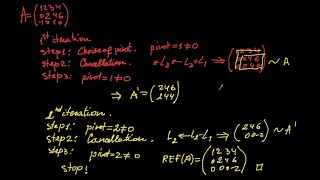 A=(1 2 3 4
0 2 4 6
-1 0 1 0)
1st iteration
step1: Choice of pivot. pivot=1≠0
step2: Cancellation. L3+L1 ⇒ (1 2 3 4
0 2 4 6
0 2 4 4) ~ A
step3: pivot=1≠0
⇒ A'=(2 4 6
2 4 4)
2nd iteration.
step1: pivot=2≠0
step2: Cancellation. L2←L2-L1 ⇒ (2 4 6
0 0 -2) ~ A'
step3: pivot=2≠0
stop!
REF(A)=(1 2 3 4
0 2 4 6
0 0 0 -2) □